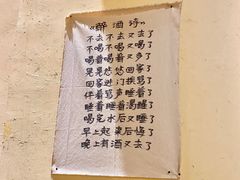 “醉酒诗”
不去不去又去了
不喝不喝又喝了
喝着喝着又多了
晃晃悠悠回家了
回家进门挨骂了
着着睡着了
睡着睡着渴醒了
喝完水后又睡了
早上起来后悔了
晚上有酒又去了